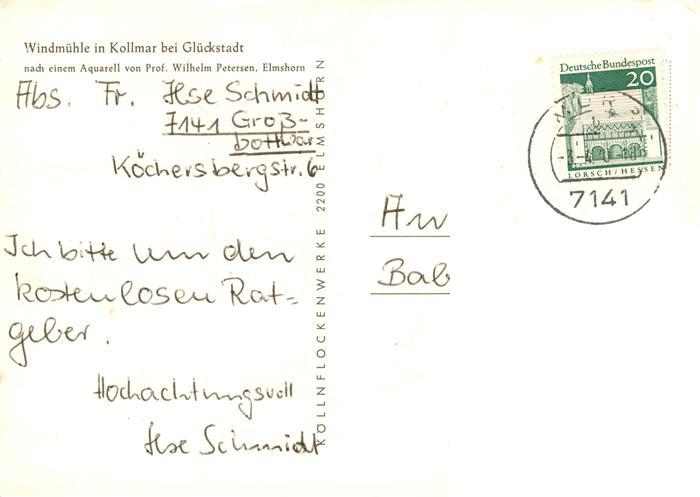 Windmühle in Kollmar bei Glückstadt
nach einem Aquarell von Prof. Wilhelm Petersen, Elmshorn
Abs. Fr. Ilse Schmidt
7141 Groß-
bottwar
Köchersbergstr. 6
Ich bitte um den
kostenlosen Rat=
geber.
Hochachtungsvoll
Ilse Schmidt
KÖLLNFLOCKENWERKE 2200 ELMSHORN
An
Bab
Deutsche Bundespost
20
LORSCH/HESSEN
7141